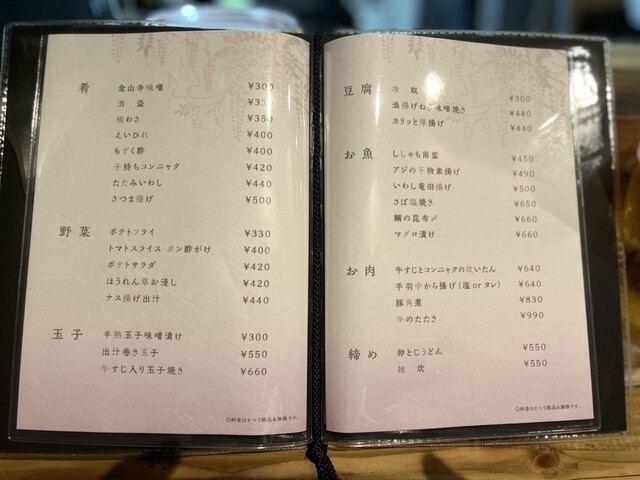 肴 金山寺味噌 ¥300
酒盗 ¥330
板わさ ¥350
えいひれ ¥400
もずく酢 ¥400
子持ちコンニャク ¥420
たたみいわし ¥440
さつま揚げ ¥500
野菜 ポテトフライ ¥330
トマトスライス ポン酢がけ ¥400
ポテトサラダ ¥420
ほうれん草お浸し ¥420
ナス揚げ出汁 ¥440
玉子 半熟玉子味噌漬け ¥300
出汁巻き玉子 ¥550
牛すじ入り玉子焼き ¥660
◎料金はすべて税込み価格です。
豆腐 冷奴 ¥300
油揚げねぎ味噌焼き ¥440
カリッと厚揚げ ¥440
お魚 ししゃも南蛮 ¥450
アジの干物素揚げ ¥490
いわし竜田揚げ ¥500
さば塩焼き ¥650
鯛の昆布〆 ¥660
マグロ漬け ¥660
お肉 牛すじとコンニャクの炊いたん ¥640
手羽中から揚げ(塩 or タレ) ¥640
豚角煮 ¥830
牛のたたき ¥990
締め 卵とじうどん ¥550
雑炊 ¥550
◎料金はすべて税込み価格です。